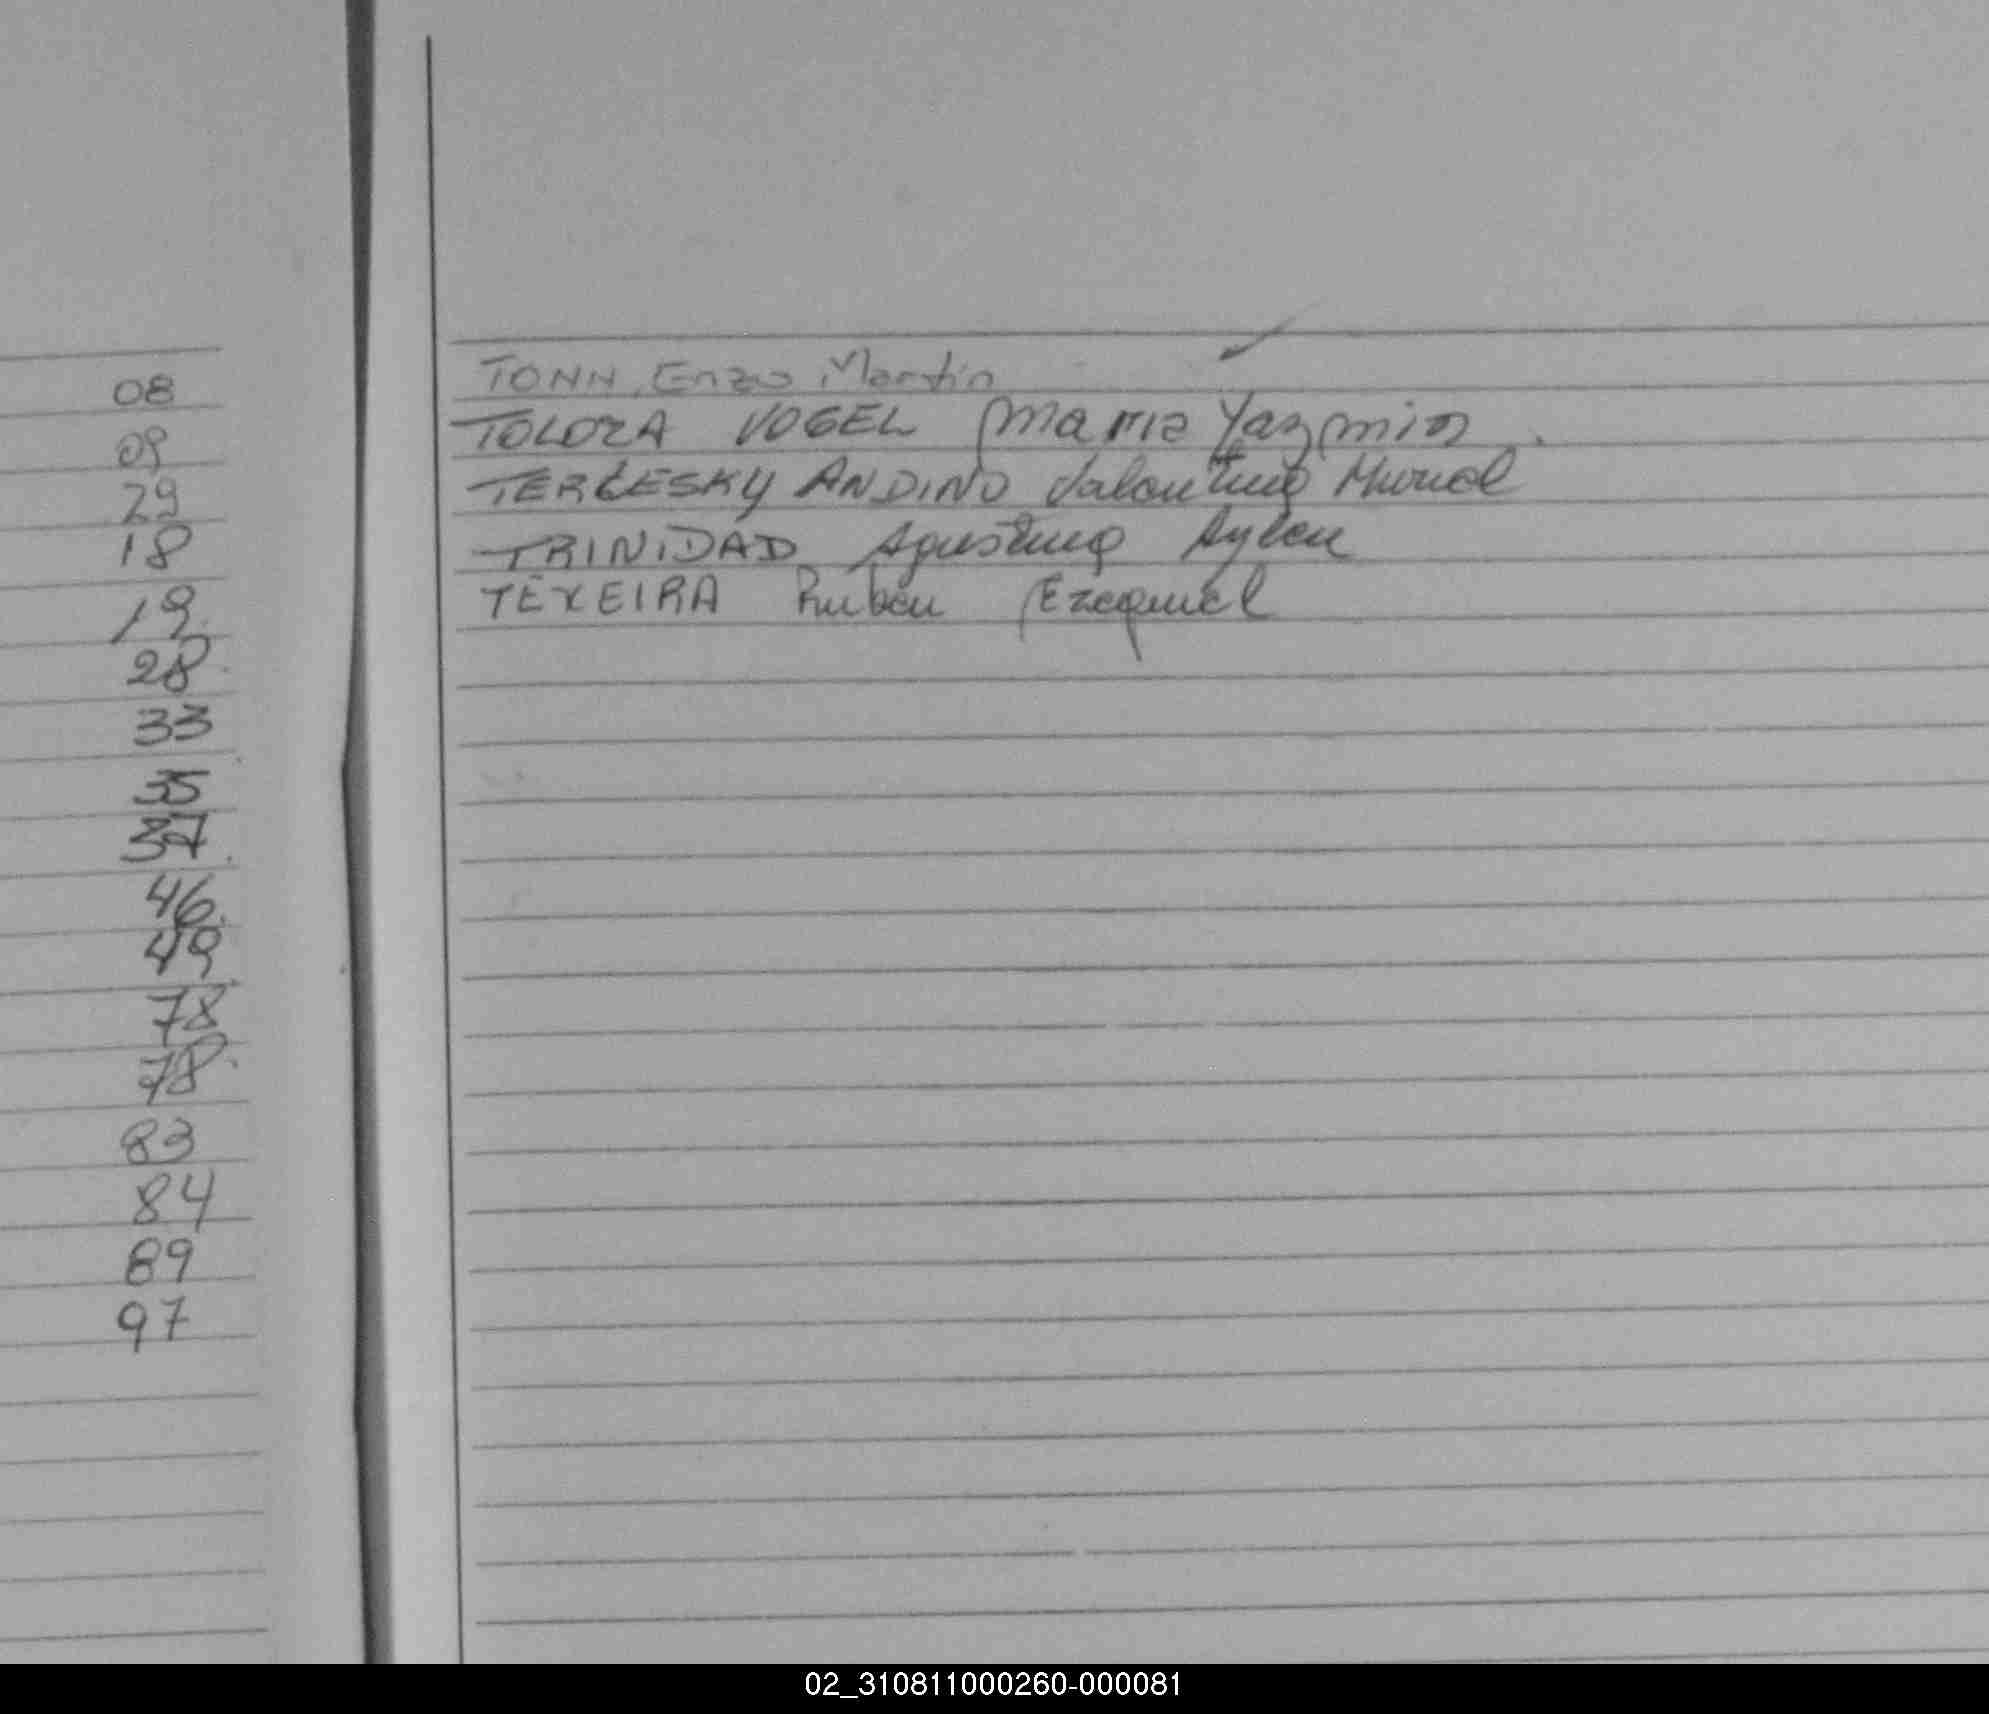 08
09
29
18
19
28
33
35
37
46
49
78
78
83
84
89
97
TONN, Enzo Martin
TOLOZA VOGEL Maria Yazmin
TERLESKY ANDINO Valentina Muriel
TRINIDAD Agustina Aylen
TEXEIRA Ruben Ezequiel
02_310811000260-000081